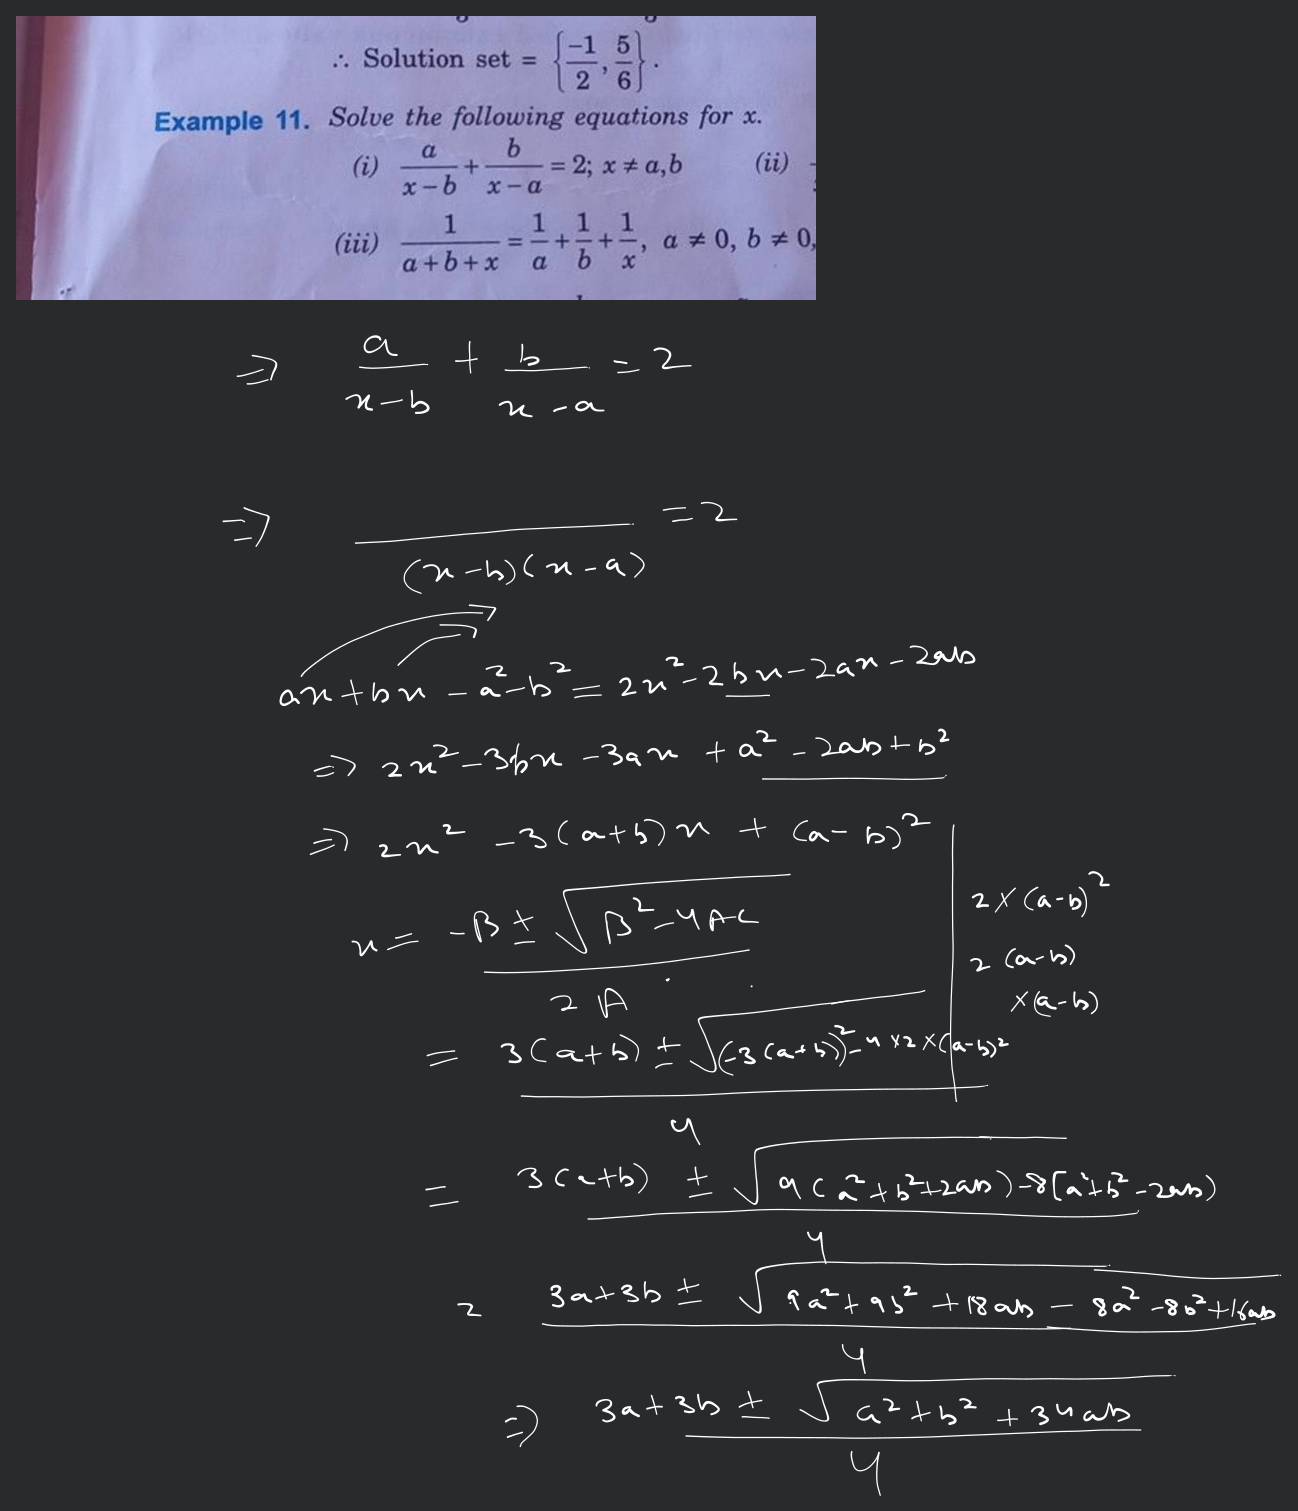 ∴ Solution set = {-1/2, 5/6}.
Example 11. Solve the following equations for x.
(i) a/(x-b) + b/(x-a) = 2; x ≠ a,b (ii)
(iii) 1/(a+b+x) = 1/a + 1/b + 1/x, a ≠ 0, b ≠ 0,
⇒ a/(x-b) + b/(x-a) = 2
⇒ /((x-b)(x-a)) = 2
ax + bx - a² - b² = 2x² - 2bx - 2ax - 2ab
⇒ 2x² - 3bx - 3ax + a² - 2ab + b²
⇒ 2x² - 3(a+b)x + (a-b)²
2 × (a-b)²
2 (a-b)
× (a-b)
x = (-B ± √(B² - 4AC))/(2A)
= (3(a+b) ± √((-3(a+b))² - 4×2×(a-b)²))/4
= (3(a+b) ± √(9(a²+b²+2ab) - 8[a²+b²-2ab)))/4
= (3a+3b ± √(9a²+9b²+18ab - 8a²-8b²+16ab))/4
⇒ (3a+3b ± √(a²+b²+34ab))/4